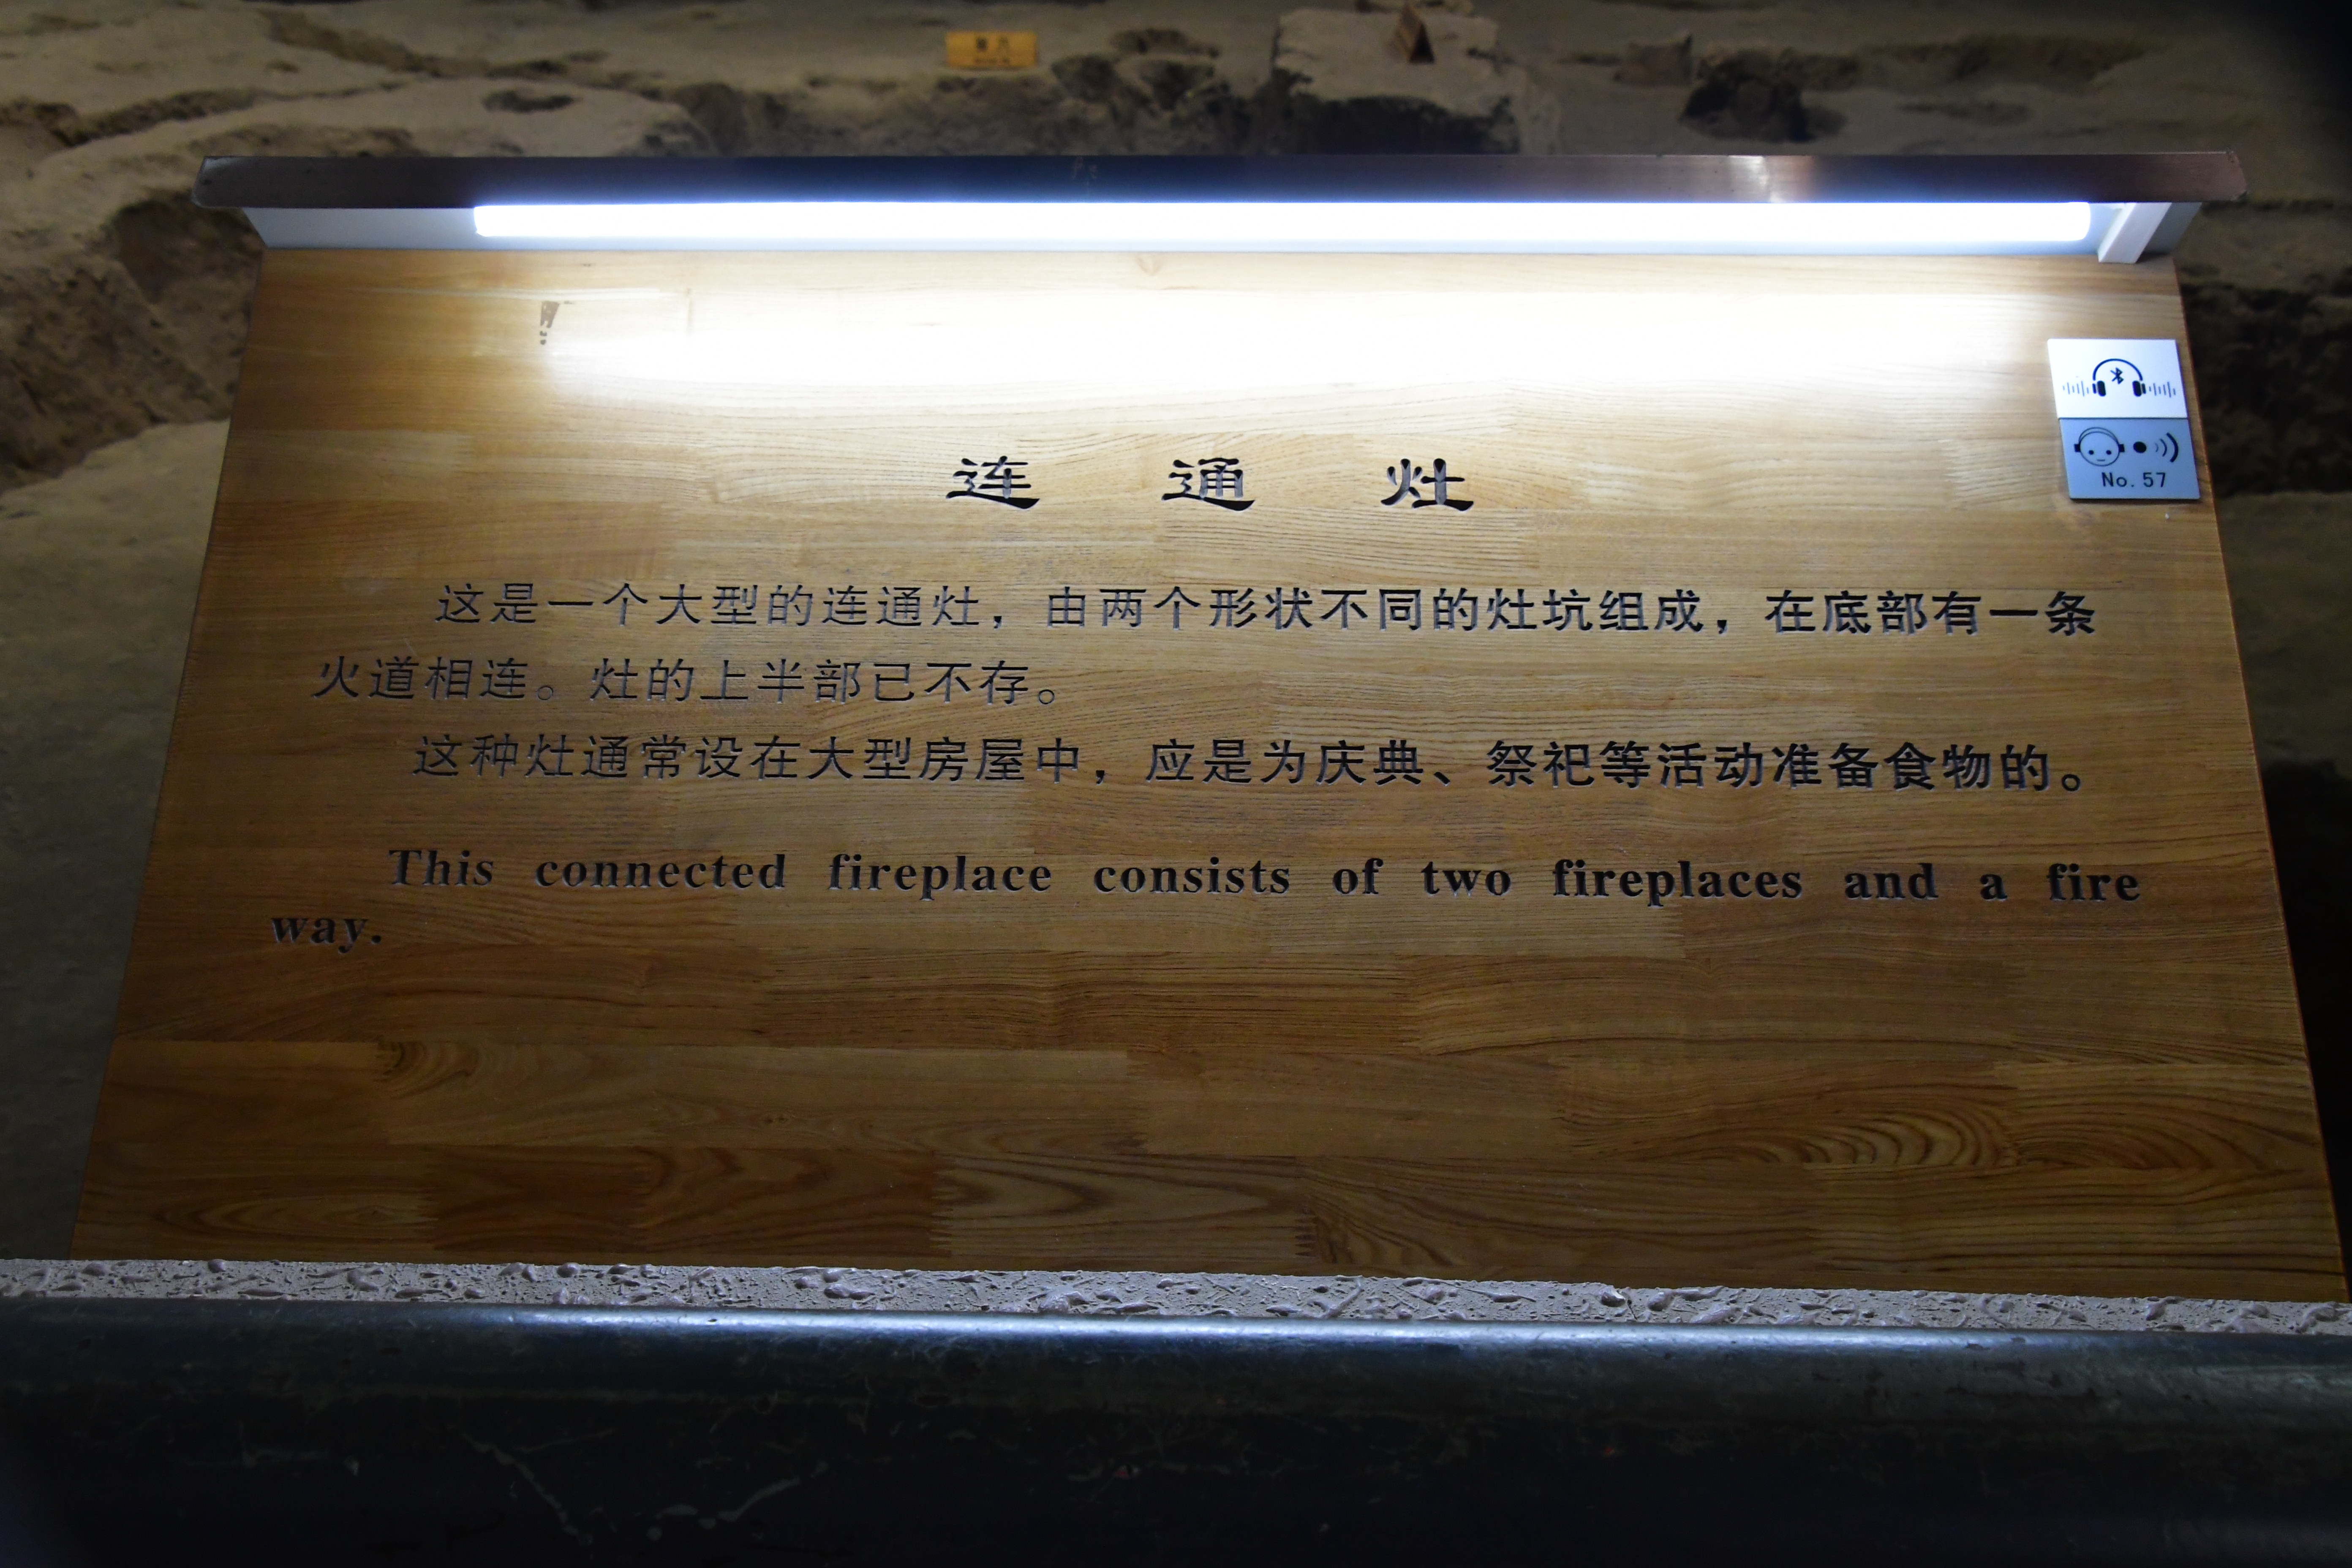 连 通 灶
No. 57
这是一个大型的连通灶，由两个形状不同的灶坑组成，在底部有一条
火道相连。灶的上半部已不存。
这种灶通常设在大型房屋中，应是为庆典、祭祀等活动准备食物的。
This connected fireplace consists of two fireplaces and a fire
way.